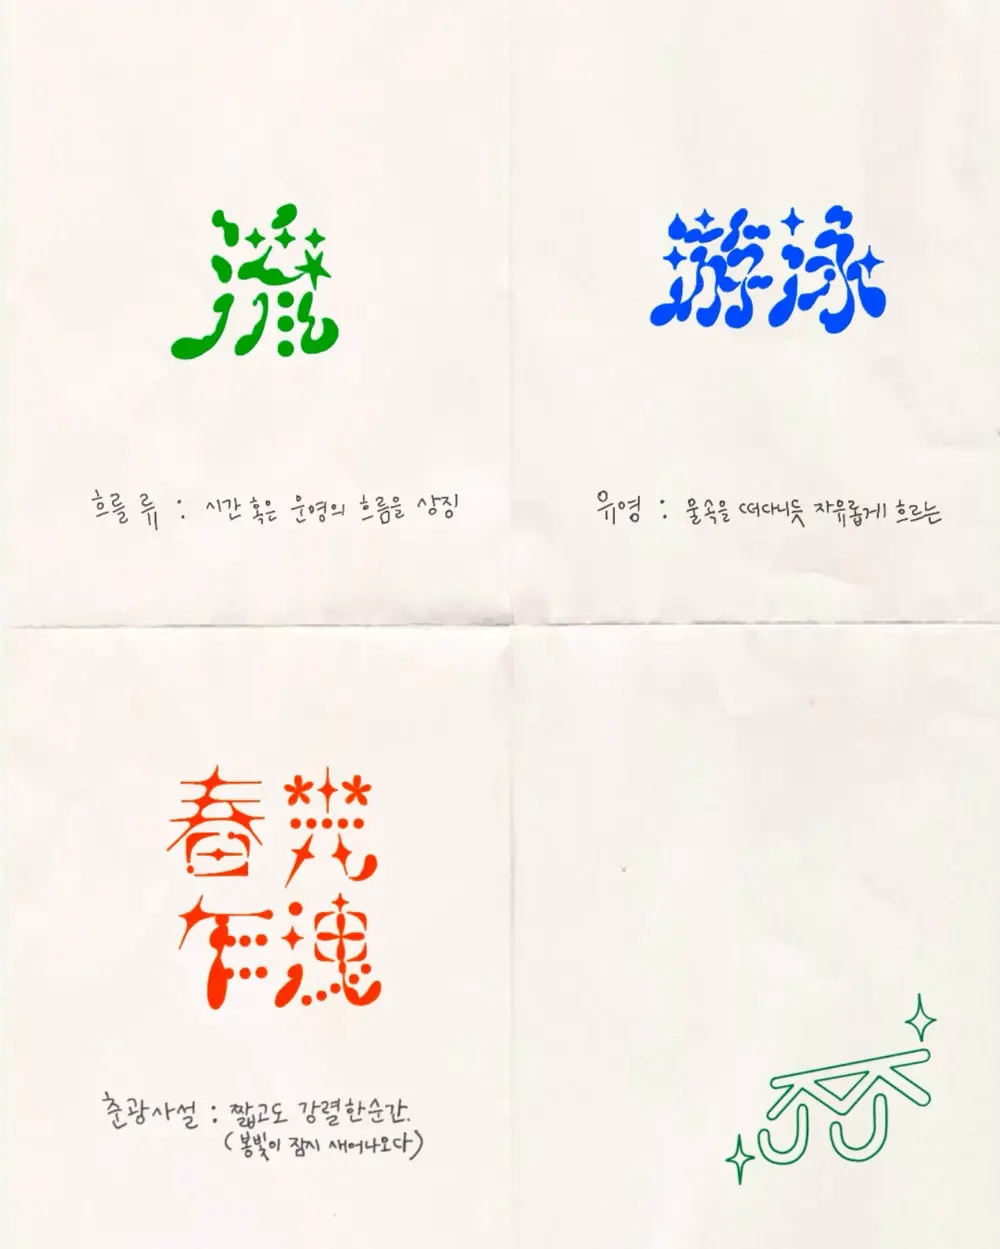 流
游泳
흐를 류 : 시간 혹은 운명의 흐름을 상징
유영 : 물속을 떠다니듯 자유롭게 흐르는
春光
乍洩
춘광사설 : 짧고도 강렬한순간.
(봄빛이 잠시 새어나오다)